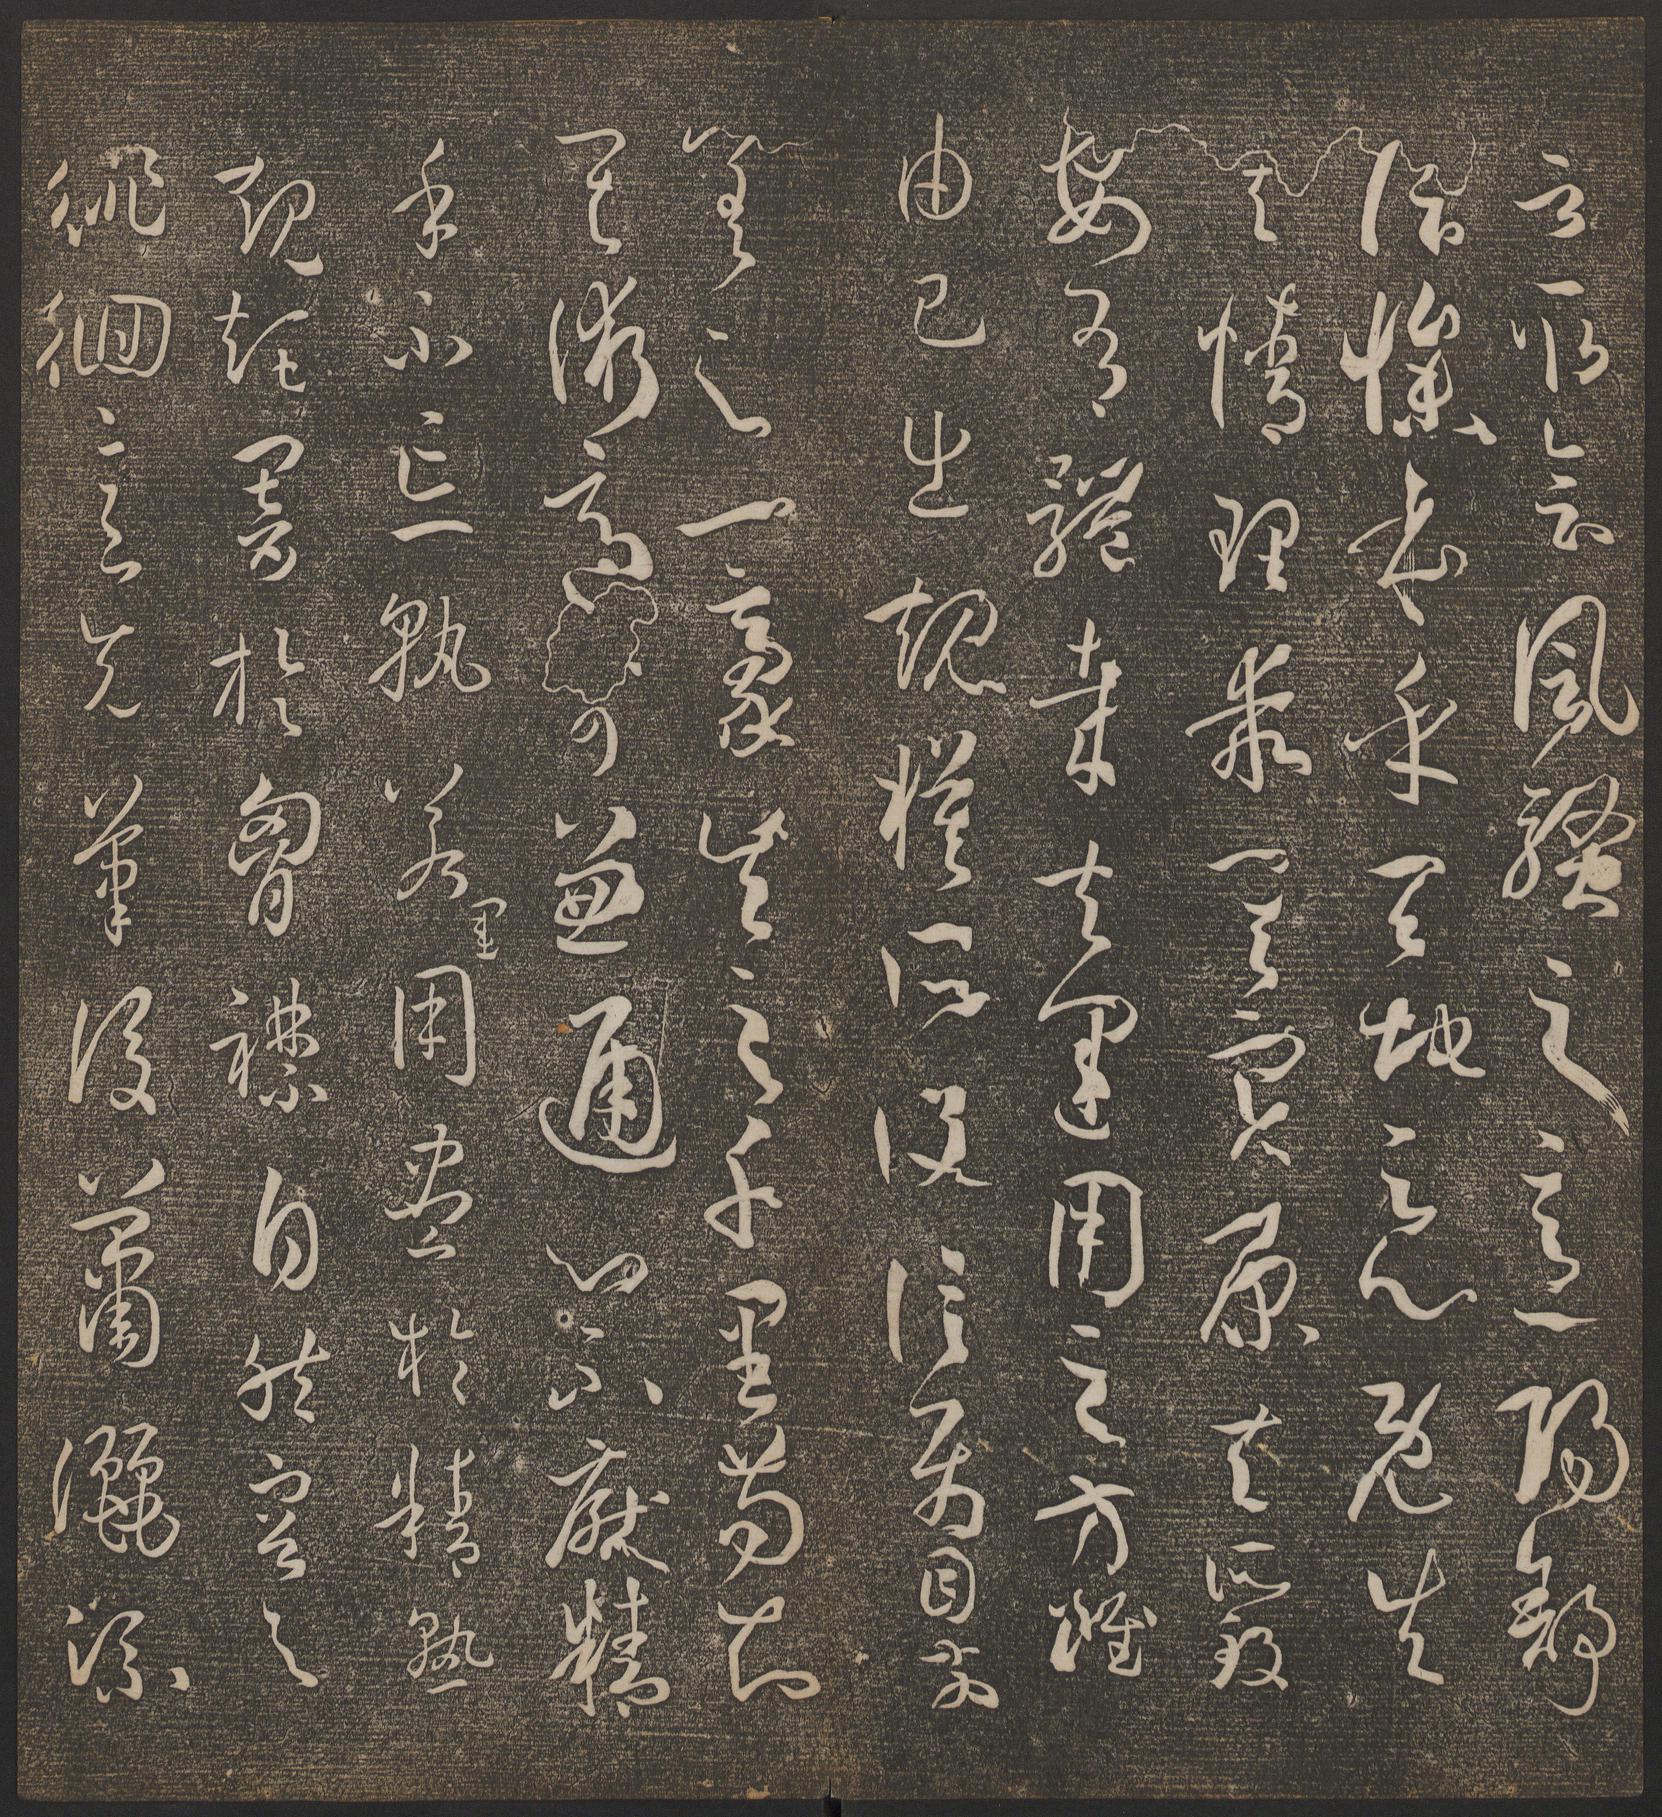 言取會風騷之意陽舒
陰慘本乎天地之心既失
其情理乖其實原夫所致
安有體哉夫運用之方雖
由己出規模所設信屬目前
差之一豪失之千里苟知
其術適可兼通心不厭精
手不忘熟若運用盡於精熟
規矩闇於胷襟自然容與
徘徊意先筆後瀟灑流